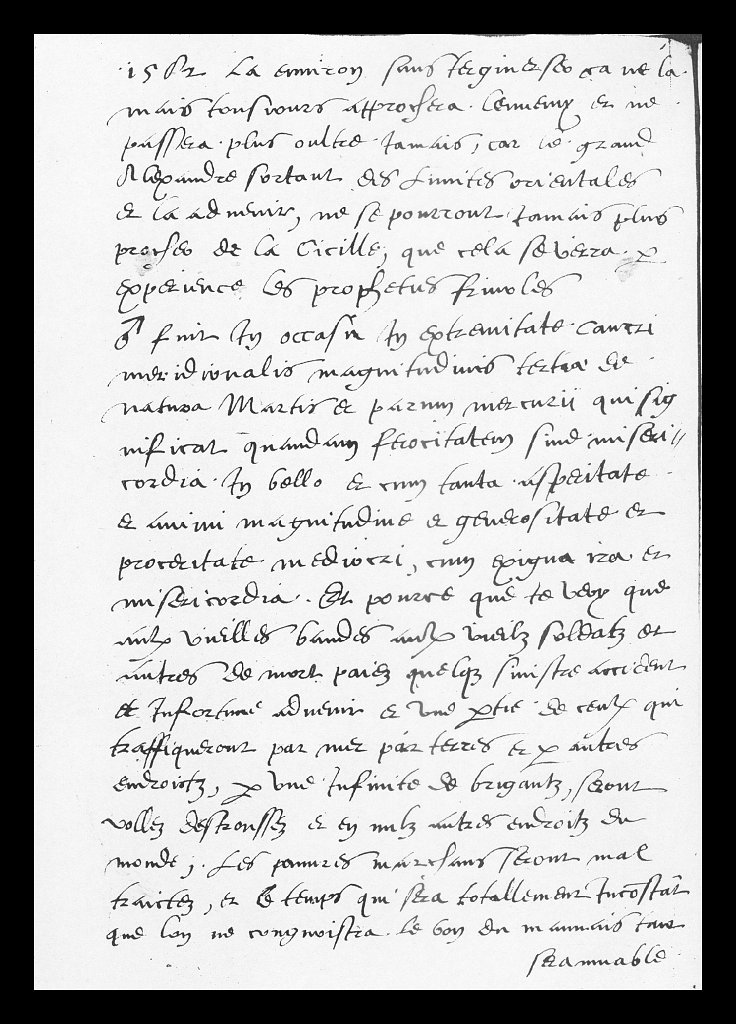 1562 La environ sans terginerser ça ne la
mais tousiours approchera lennemy et ne
passera plus oultre Jamais, car le grand
Alexandre sortant des Limites orientales
et la advenir, ne se pourront Jamais plus
procher de la Cicille, que cela se verra p
experience les prophetes frivoles
♂ fuit In occasu In extremitate Cancri
meridionalis magnitudinis tertia de
natura Martis et parum mercurii qui sig
nificat quandam ferocitatem sine miseri//
cordia In bello et cum tanta asperitate
et animi magnitudine et generositate et
proceritate mediocri, cum exigua ira et
misericordia. Et pource que te veux que
aulx vieilles bandes aulx vieilz soldatz et
autres de mort paiez quelqz sinistre accident
et Infortune advenir et une ptie de ceulx qui
traffiqueront par mer par terres et p autres
endroictz, p une Infinite de brigantz, seront
vollez destroussez et en milz autres endroitz du
monde, Les pauures marchans seront mal
traictez, et le temps qui sera totallement Inconstant
que lon ne congnoistra le bon du mauuais tant
sera muable